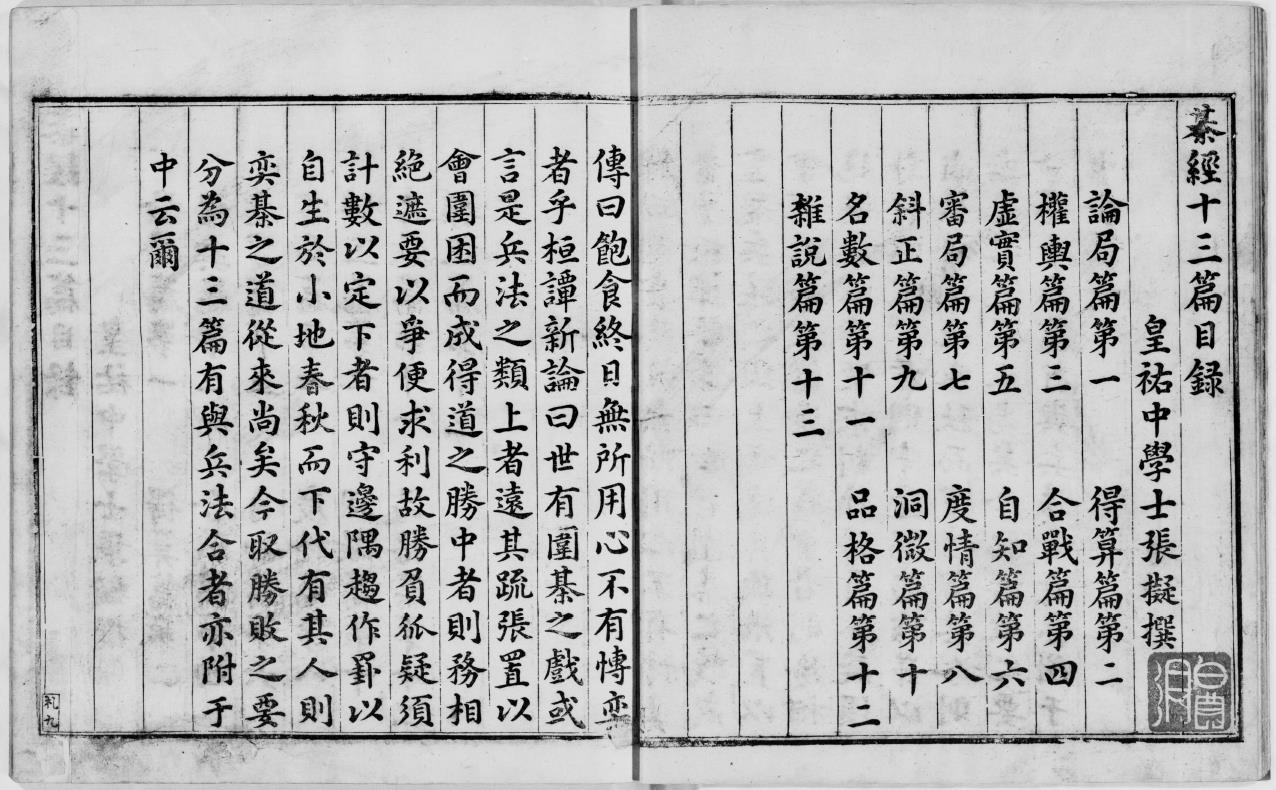 棊經十三篇目録
皇祐中學士張擬撰
論局篇第一 得算篇第二
權輿篇第三 合戰篇第四
虛實篇第五 自知篇第六
審局篇第七 度情篇第八
斜正篇第九 洞微篇第十
名數篇第十一 品格篇第十二
雜說篇第十三
傳曰飽食終日無所用心不有愽奕
者乎桓譚新論曰世有圍棊之戲或
言是兵法之類上者遠其疏張置以
會圍困而成得道之勝中者則務相
絶遮要以爭便求利故勝負狐疑須
計數以定下者則守邊隅趨作罫以
自生於小地春秋而下代有其人則
奕棊之道從來尚矣今取勝敗之要
分為十三篇有與兵法合者亦附于
中云爾
礼九